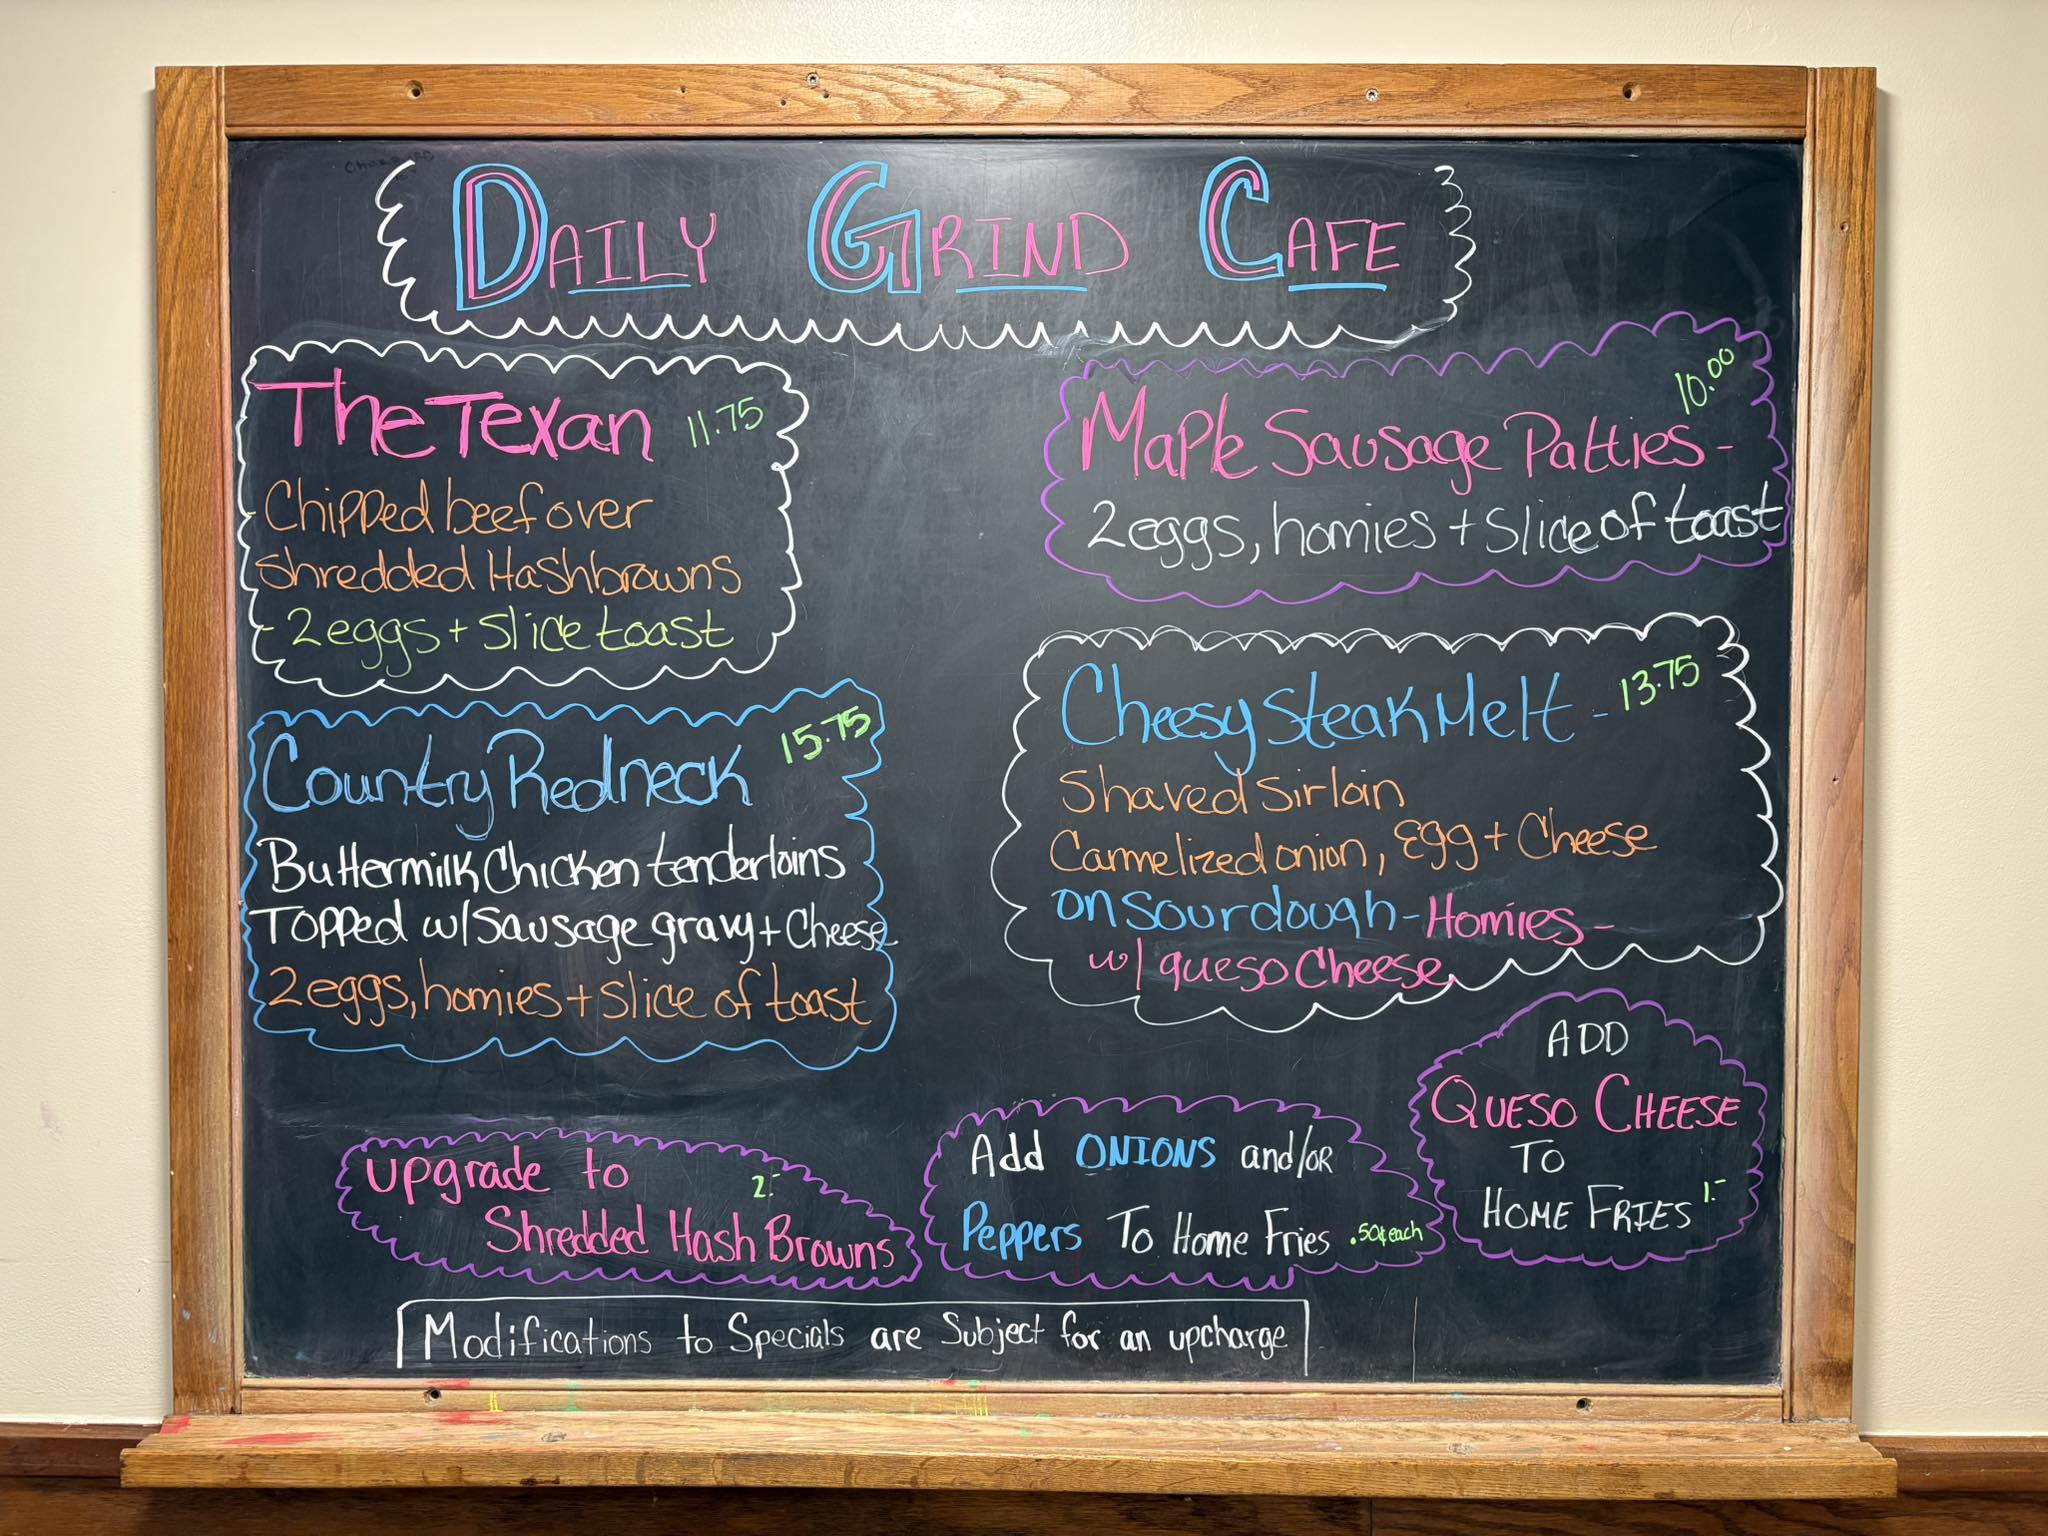 DAILY GRIND CAFE
The Texan 11.75
Chipped beef over
Shredded Hashbrowns
- 2 eggs + Slice toast
Country Redneck 15.75
Buttermilk Chicken tenderloins
Topped w/ Sausage gravy + Cheese
2 eggs, homies + slice of toast
10.00
Maple Sausage Patties -
2 eggs, homies + Slice of toast
Cheesy Steak Melt - 13.75
Shaved Sirloin
Carmelized onion, Egg + Cheese
on Sourdough - Homies -
w/ queso Cheese
upgrade to 2.-
Shredded Hash Browns
Add ONIONS and/or
Peppers To Home Fries .50¢ each
ADD
QUESO CHEESE
TO
HOME FRIES 1.-
Modifications to Specials are Subject for an upcharge